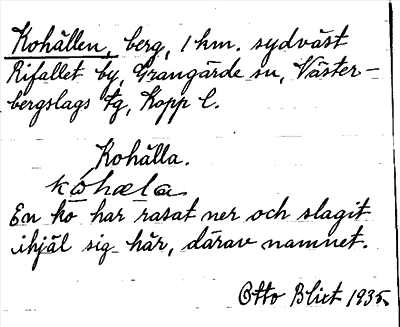 Kohällen, berg, 1 km. sydväst
Rifallet by, Grangärde sn, Väster-
bergslags tg, Kopp l.
Kohälla.
kóhæla
En ko har rasat ner och slagit
ihjäl sig här, därav namnet.
Otto Blixt 1935.